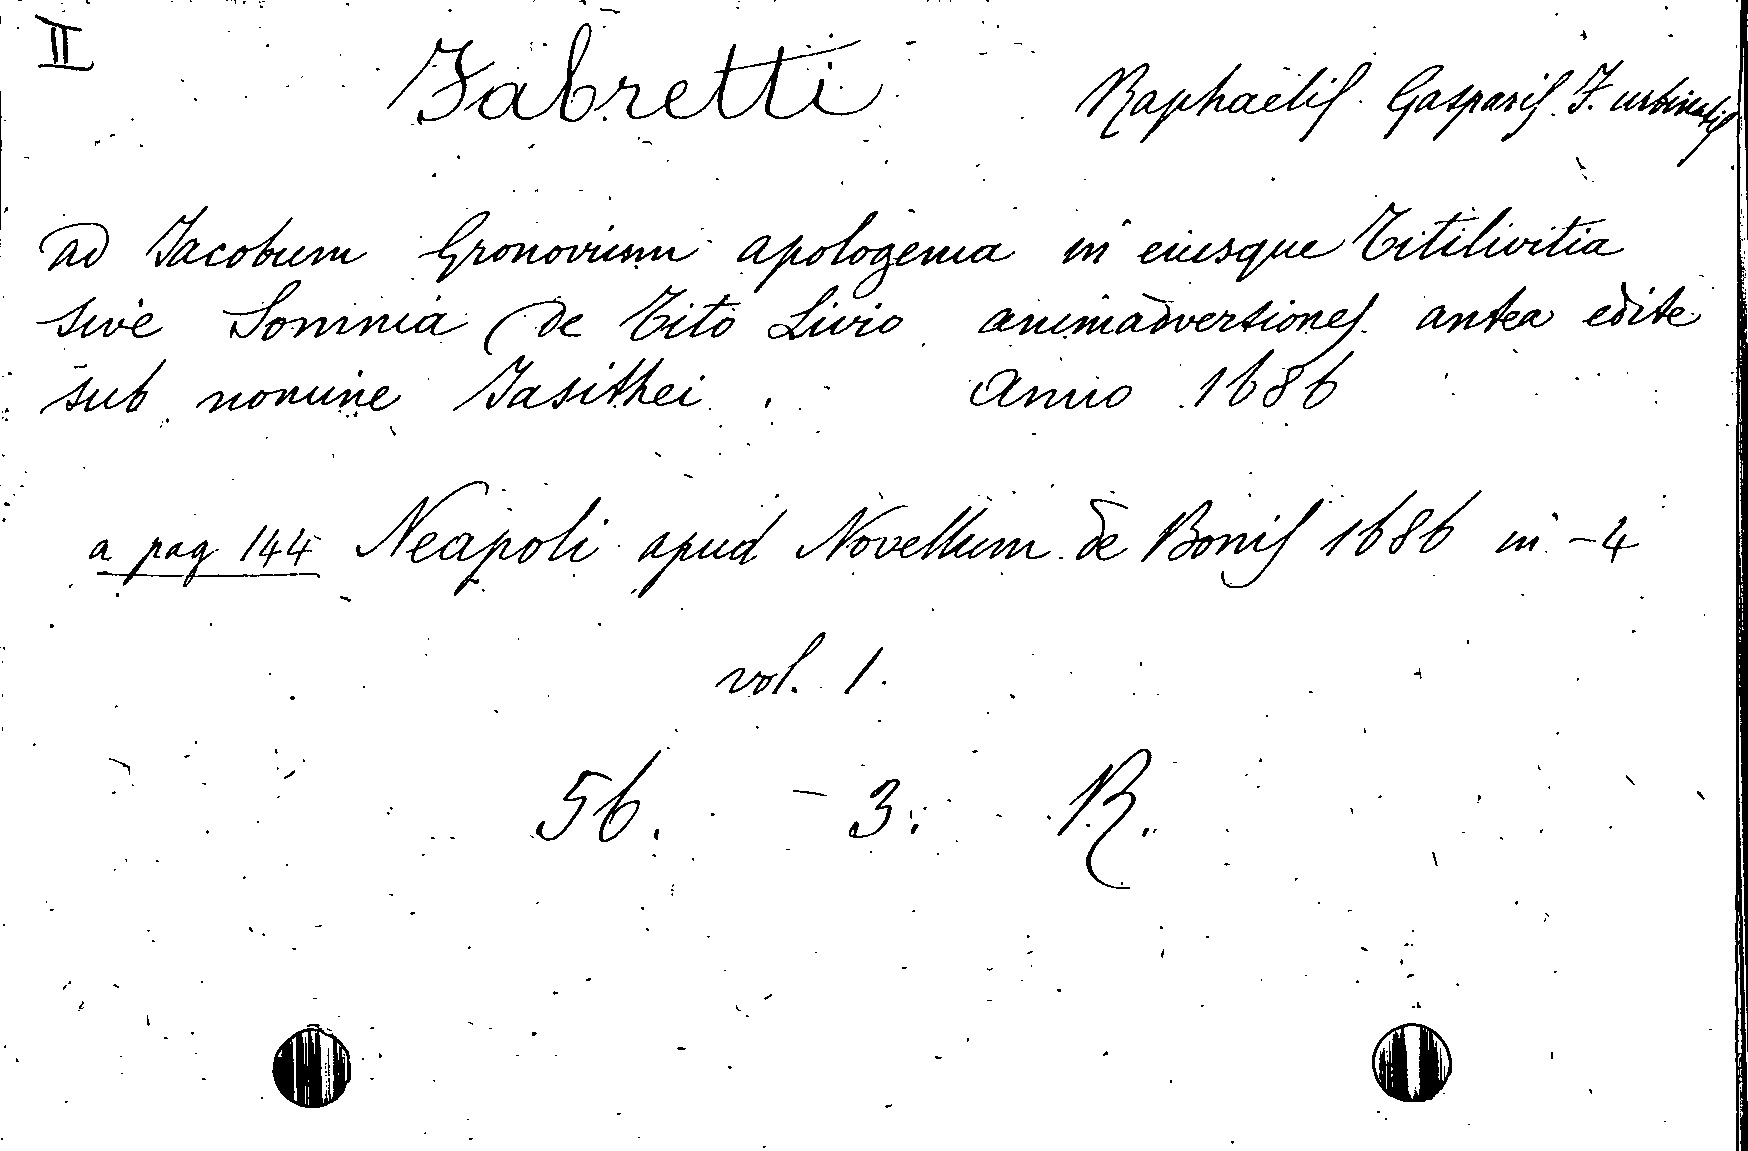 II
Fabretti Raphaelis Gasparis F. urbinatis
ad Jacobum Gronovium apologema in eiusque Titilivitia
sive Somnia de Tito Livio animadversiones antea edite
sub nomine Iasithei. anno 1686
a pag 144 Neapoli apud Novellum de Bonis 1686 in-4
vol. 1.
56. - 3. R.